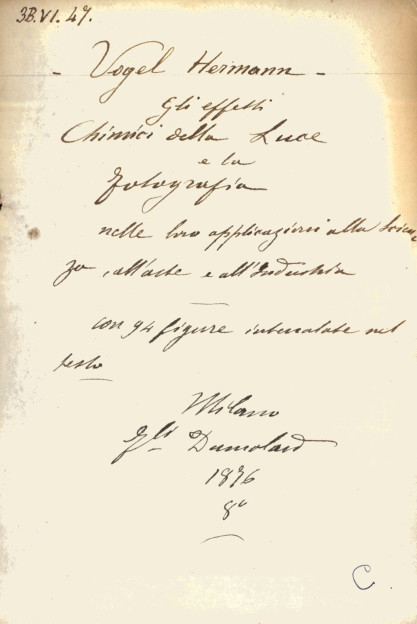 3B.VI.47.
- Vogel Hermann -
Gli effetti
Chimici della Luce
e la
fotografia
nelle loro applicazioni alla Scien
za, all'arte e all'Industria
con 94 figure intercalate nel
testo
Milano
Flli Dumolard
1876
8º
C